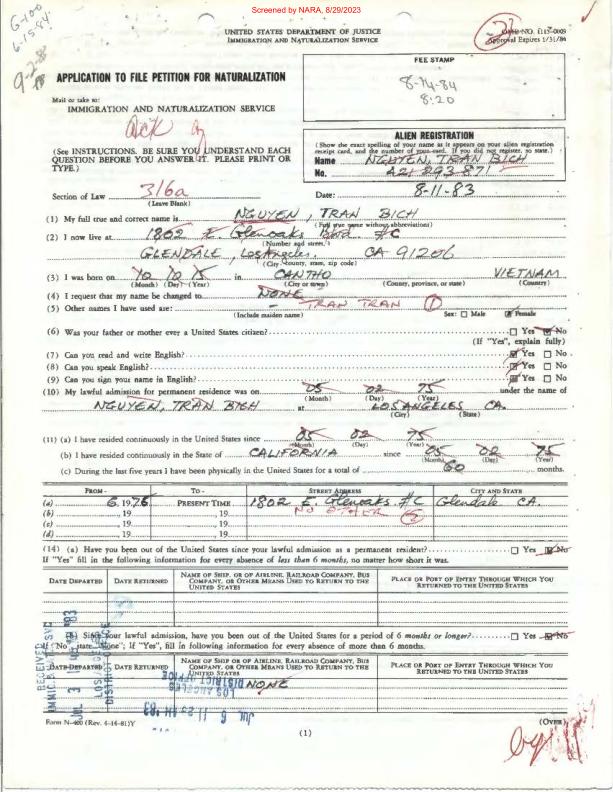 Screened by NARA, 8/29/2023
G-100
6-15-84
9-2-8
UNITED STATES DEPARTMENT OF JUSTICE
IMMIGRATION AND NATURALIZATION SERVICE
OMB-NO. 1115-0009
Approval Expires 1/31/84
FEE STAMP
8-14-84
8:20
APPLICATION TO FILE PETITION FOR NATURALIZATION
Mail or take to:
IMMIGRATION AND NATURALIZATION SERVICE
(See INSTRUCTIONS. BE SURE YOU UNDERSTAND EACH
QUESTION BEFORE YOU ANSWER IT. PLEASE PRINT OR
TYPE.)
ALIEN REGISTRATION
(Show the exact spelling of your name as it appears on your alien registration
receipt card, and the number of your card. If you did not register, so state.)
Name NGUYEN, TRAN BICH
No. A21 293 871
Section of Law 316a
(Leave Blank)
Date: 8-11-83
(1) My full true and correct name is NGUYEN, TRAN BICH
(Full true name without abbreviations)
(2) I now live at 1802 E. Glenoaks Blvd. #C
(Number and street,)
GLENDALE, Los Angeles. CA 91206
(City, county, state, zip code)
(3) I was born on in CANTHO VIETNAM
(Month) (Day) (Year) (City or town) (County, province, or state) (Country)
(4) I request that my name be changed to NONE
(5) Other names I have used are: - TRAN TRAN 1
(Include maiden name) Sex: ☐ Male ☒ Female
(6) Was your father or mother ever a United States citizen? ☐ Yes ☒ No
(If "Yes", explain fully)
(7) Can you read and write English? ☒ Yes ☐ No
(8) Can you speak English? ☒ Yes ☐ No
(9) Can you sign your name in English? ☒ Yes ☐ No
(10) My lawful admission for permanent residence was on 05 02 75 under the name of
(Month) (Day) (Year)
NGUYEN, TRAN BICH at LOS ANGELES CA.
(City) (State)
(11) (a) I have resided continuously in the United States since 05 02 75
(Month) (Day) (Year)
(b) I have resided continuously in the State of CALIFORNIA since 05 02 75
(Month) (Day) (Year)
(c) During the last five years I have been physically in the United States for a total of 60 months.
FROM - TO - STREET ADDRESS CITY AND STATE
(a) 6, 1975 PRESENT TIME 1802 E. Glenoaks #C Glendale CA.
(b) , 19 , 19 NO OTHER
(c) , 19 , 19
(d) , 19 , 19
(14) (a) Have you been out of the United States since your lawful admission as a permanent resident? ☐ Yes ☒ No
If "Yes" fill in the following information for every absence of less than 6 months, no matter how short it was.
DATE DEPARTED DATE RETURNED NAME OF SHIP, OR OF AIRLINE, RAILROAD COMPANY, BUS COMPANY, OR OTHER MEANS USED TO RETURN TO THE UNITED STATES PLACE OR PORT OF ENTRY THROUGH WHICH YOU RETURNED TO THE UNITED STATES
Since your lawful admission, have you been out of the United States for a period of 6 months or longer? ☐ Yes ☒ No
If "No" state "None"; If "Yes", fill in following information for every absence of more than 6 months.
DATE DEPARTED DATE RETURNED NAME OF SHIP, OR OF AIRLINE, RAILROAD COMPANY, BUS COMPANY, OR OTHER MEANS USED TO RETURN TO THE UNITED STATES PLACE OR PORT OF ENTRY THROUGH WHICH YOU RETURNED TO THE UNITED STATES
NONE
RECEIVED
LOS ANGELES
DISTRICT OFFICE
Form N-400 (Rev. 4-16-81)Y
(OVER)
(1)